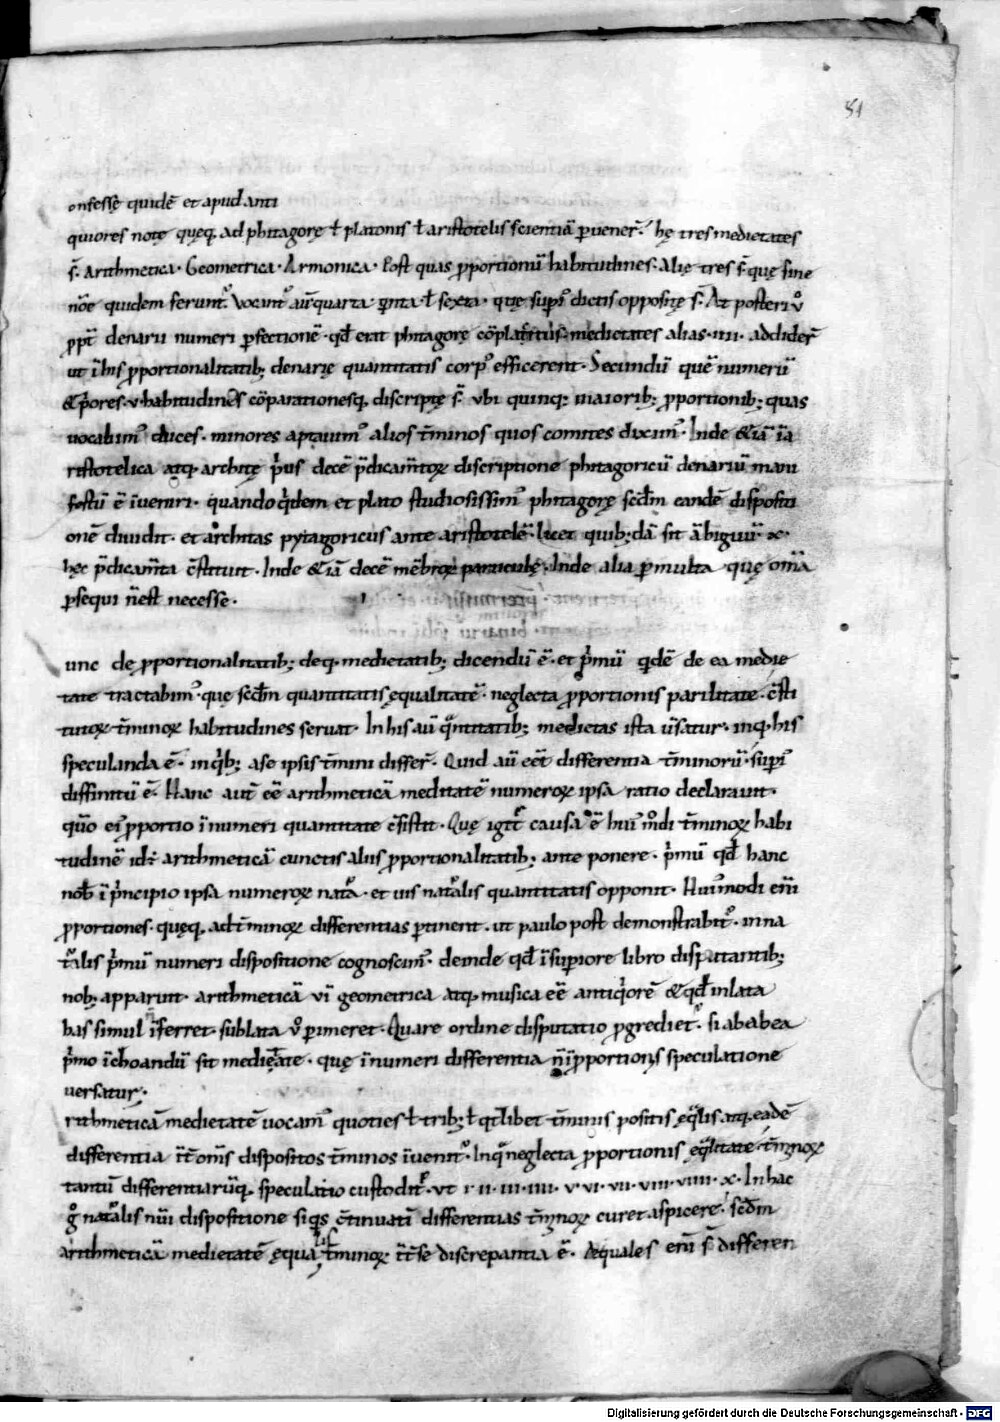 51
onfesse quidē et apud anti
quiores notę quęq. ad phitagorę ł platonis ł aristotelis scientiā puener̄. hę tres medietates
s̄. Arithmetica. Geometrica. Armonica. Post quas pportionū habitudines. Alię tres s̄ quę sine
nōe quidem ferunt᷒. Vocant᷒ aū quarta qinta ł sexta. quę supi᷒ dictis oppositę s̄. At posteri v̊
ppt̄ denarii numeri pfectionē. qđ erat phitagorę medietates alias .IIII. addider̄
ut ī his pportionalitatib; denarię quantitatis corp᷒ efficerent. Secundū quē numerū
& p̄ores .v. habitudines cōparationesq. discriptę s̄. vbi quinq; maiorib; pportionib; quas
uocabim᷒ duces. minores aptauim᷒ alios t̄minos quos comites dixim᷒. Inde &iā īa
ristotelica atq. architę p̄us decē p̄dicam̄toꝝ discriptione phitagoricū denariū mani
festū ē īueniri. quandoq̇dem et plato studiosissim᷒ phitagorę sc̄dm eandē dispositi
onē diuidit. et architas pytagoricus ante aristotelē. licet quib;dā sit ābiguū .x.
hęc p̄dicam̄ta c̄stituit. Inde &iā decē mēbroꝝ particulę. Inde alia pmulta quę om̄a
psequi n̄ est necesse.
unc de pportionalitatib; deq. medietatib; dicendū ē. et p̄mū qdē de ea medie
tate tractabim᷒. que sc̄dm quantitatis ęqualitatē. neglecta pportionis parilitate. c̄sti
tutoꝝ t̄minoꝝ habitudines seruat. In his aū qntitatib; medietas ista ūsatur. inq. his
speculanda ē. inqb; a se ipsis t̄mini differ̄. Quid aū eet̄ differentia t̄minorū. supi᷒
diffinitū ē. Hanc aut̄ eē arithmeticā medietatē numeroꝝ ipsa ratio declarauit.
qm̄o ei᷒ pportio ī numeri quantitate c̄sistit. Quę igit᷒ causa ē hui᷒ modi t̄minoꝝ habi
tudinē id ē arithmeticā cunctis aliis pportionalitatib; ante ponere. p̄mū qđ hanc
nob̄ ī p̄ncipio ipsa numeroꝝ nata᷒. et uis nat᷒alis quantitatis opponit. Hui᷒modi eni
pportiones. quęq. ad t̄minoꝝ differentias ptinent. ut paulo post demonstrabit᷒. in na
t᷒alis p̄mū numeri dispositione cognoscim᷒. deinde qđ ī supiore libro disputantib;
nob; apparuit. arithmeticā vī geometrica atq. musica eē antiq̇orē & qđ inlata
has simul īferret. sublata v̊ pimeret. Quare ordine disputatio pgrediet᷒. si ab ea
p̄mo īchoandū sit medietate. quę ī numeri differentia n̄ ī pportionis speculatione
uersatur.
rithmeticā medietatē uocam᷒ quoties ł trib; ł qtlibet t̄minis positis eqlis atq. eadē
differentia īt̄ om̄s dispositos t̄minos īuenit᷒. Inq᷒ neglecta pportionis eqlitate. t̄minoꝝ
tantū differentiarūq. speculatio custodit᷒. vt I. II. III. IIII. V. VI. VII. VIII. VIIII. X. In hac
g̊ nat᷒alis nūi dispositione siqs c̄tinuatī differentias t̄minoꝝ curet aspicere. sc̄dm
arithmeticā medietatē ęqualis t̄minoꝝ īt̄ se discrepantia ē. Aequales eni s̄ differen
Digitalisierung gefördert durch die Deutsche Forschungsgemeinschaft - DFG